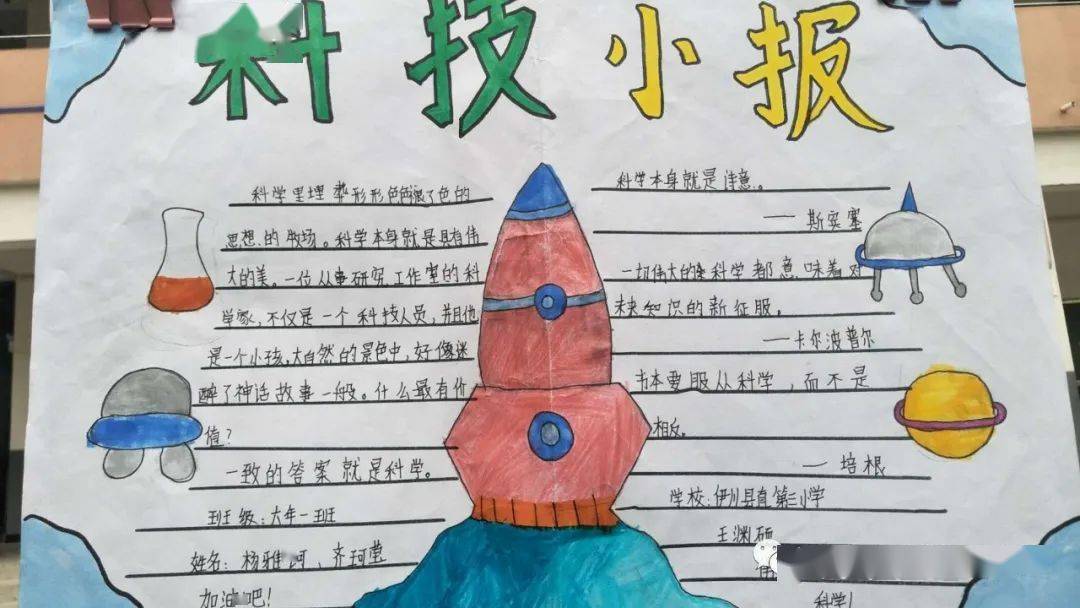 科技小报
科学里埋葬形形色色褪了色的
思想的牧场。科学本身就是具有伟
大的美。一位从事研究工作室的科
学家,不仅是一个科技人员,并且他
是一个小孩,大自然的景色中,好像迷
醉了神话故事一般。什么最有价
值?
一致的答案就是科学。
班级:六年一班
姓名:杨雅珂、齐珂莹
加油吧!
科学本身就是诗意。
——斯宾塞
一切伟大的科学都意味着对
未知识的新征服。
——卡尔波普尔
书本要服从科学,而不是
相反。
——培根
学校:伊川县直第三小学
王渊硕
科学!